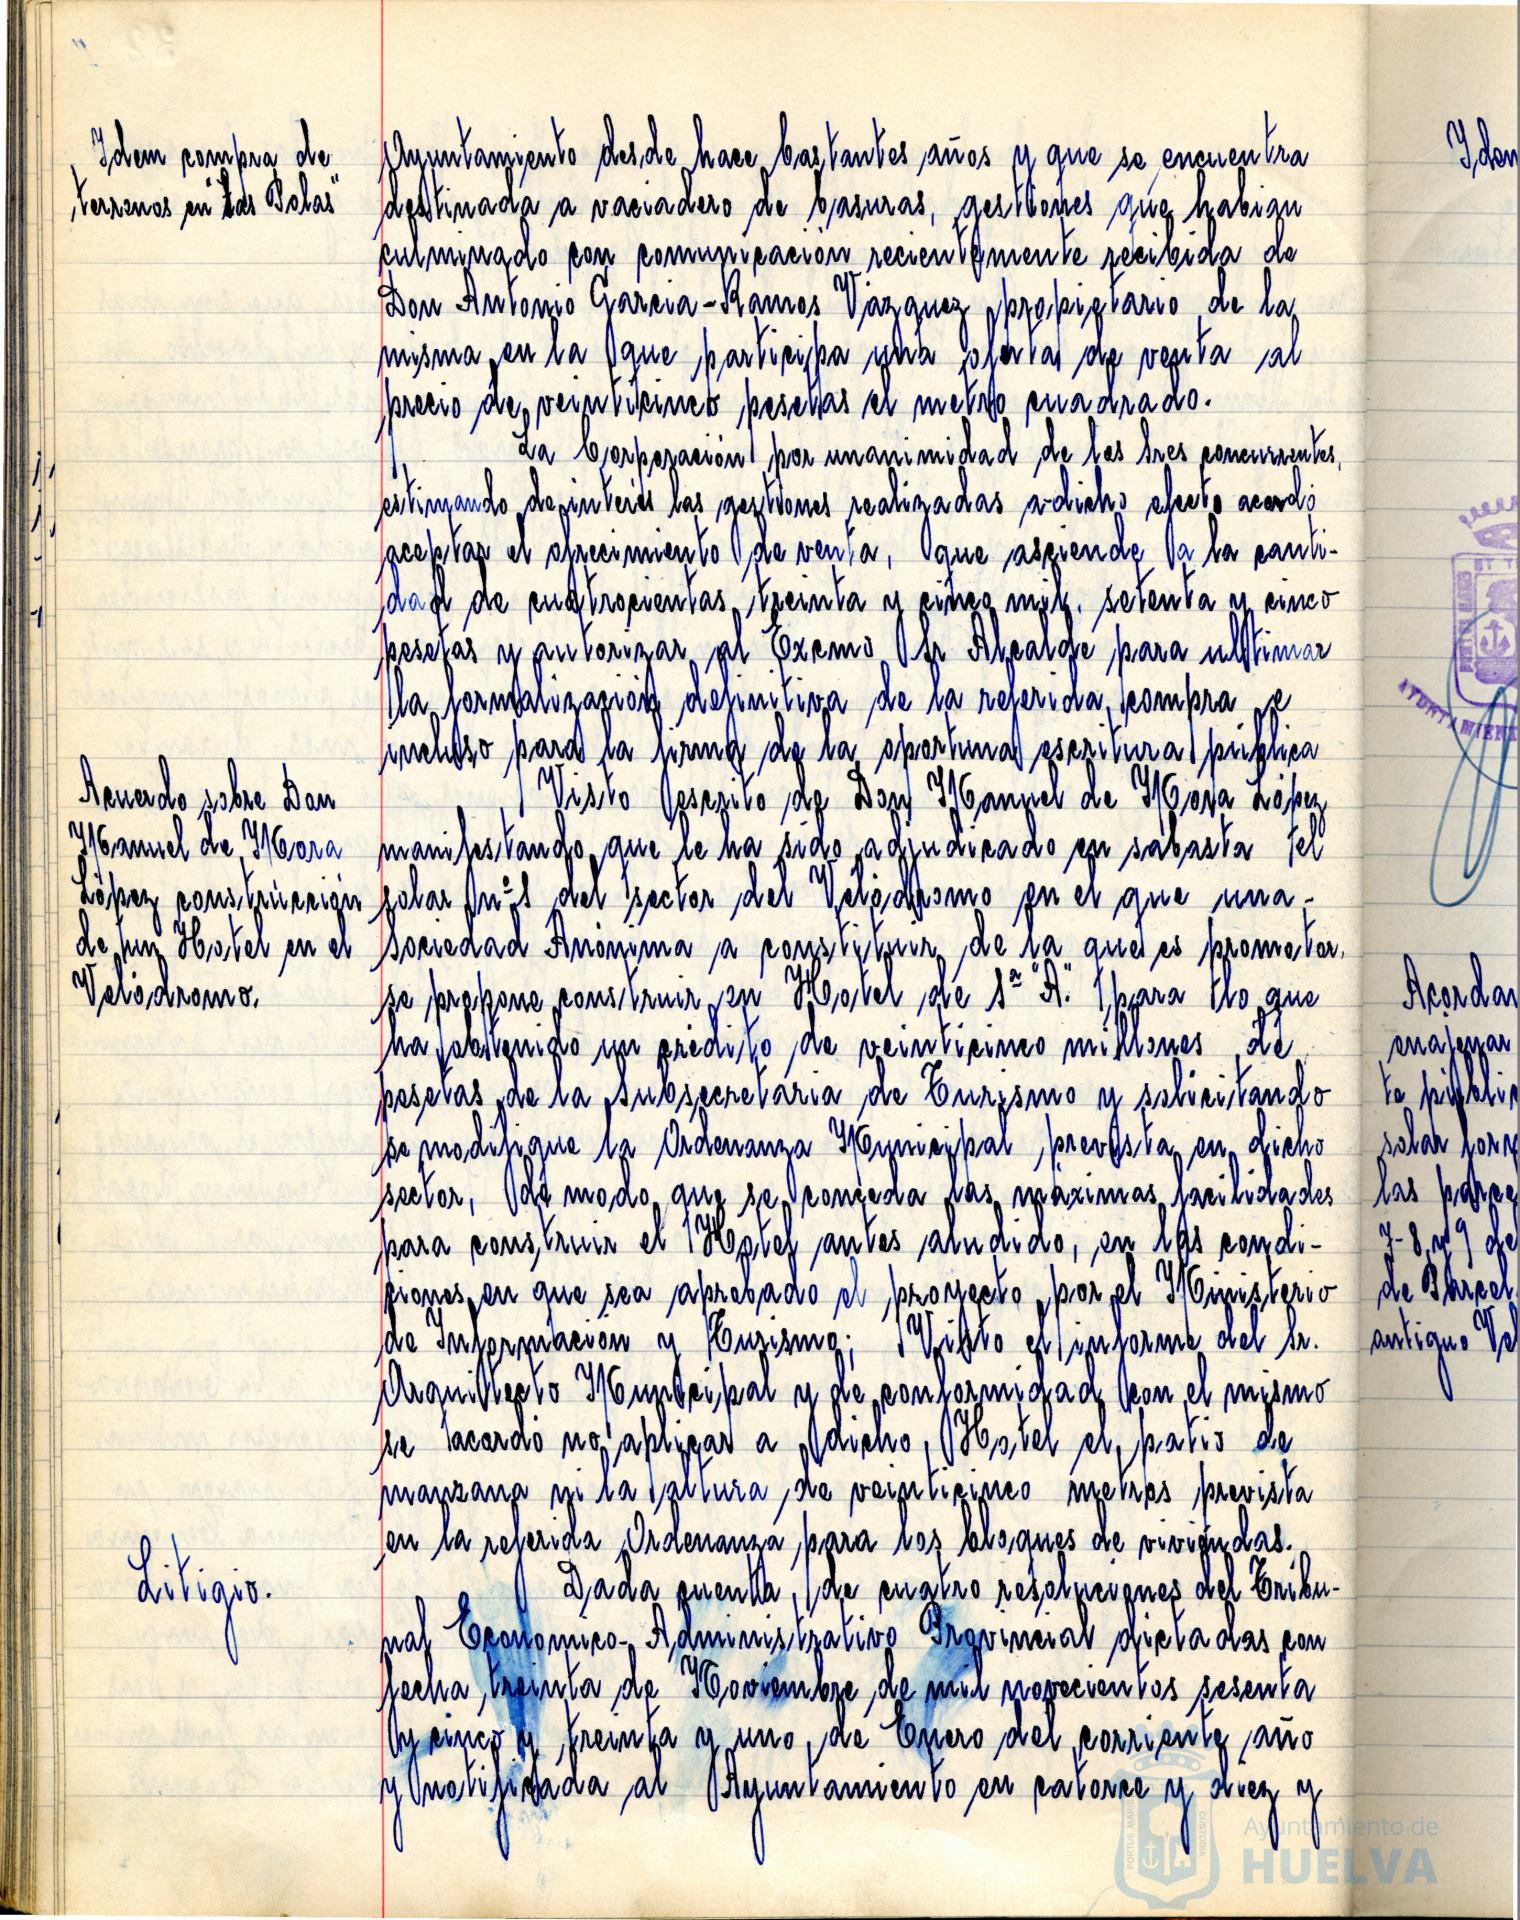 Idem compra de
terrenos en "Las Bolas"
Ayuntamiento desde hace bastantes años y que se encuentra
destinada a vaciadero de basuras, gestiones que habian
culminado con comunicación recientemente recibida de
Don Antonio Garcia-Ramos Vázquez propietario de la
misma en la que participa una oferta de venta al
precio de veinticinco pesetas el metro cuadrado.
La Corporación por unanimidad de los Sres concurrentes,
estimando de interés las gestiones realizadas a dicho efecto acordó
aceptar el ofrecimiento de venta, que asciende a la canti-
dad de cuatrocientas treinta y cinco mil setenta y cinco
pesetas y autorizar al Excmo Sr Alcalde para ultimar
la formalización definitiva de la referida compra e
incluso para la firma de la oportuna escritura pública
Acuerdo sobre Don
Manuel de Mora
López construcción
de un Hotel en el
Velódromo.
Visto escrito de Don Manuel de Mora López
manifestando que le ha sido adjudicado en subasta el
solar nº 1 del sector del Velódromo en el que una-
sociedad Anónima a constituir de la que es promotor,
se propone construir un Hotel de 1ª "A". para lo que
ha obtenido un crédito de veinticinco millones de
pesetas de la Subsecretaria de Turismo y solicitando
se modifique la Ordenanza Municipal prevista en dicho
sector, de modo que se conceda las máximas facilidades
para construir el Hotel antes aludido, en las condi-
ciones en que sea aprobado el proyecto por el Ministerio
de Información y Turismo; Visto el informe del Sr.
Arquitecto Municipal y de conformidad con el mismo
se acordó no aplicar a dicho Hotel el patio de
manzana ni la altura de veinticinco metros prevista
en la referida Ordenanza para los bloques de viviendas.
Litigio.
Dada cuenta de cuatro resoluciones del Tribu-
nal Económico-Administrativo Provincial dictadas con
fecha treinta de Noviembre de mil novecientos sesenta
y cinco y treinta y uno de Enero del corriente año
y notificada al Ayuntamiento en catorce y diez y
Iden
Acordar
enajenar
te públic
solar form
las parce
7-8 y 9 de
de Parcel
antiguo Vel
AYUNTAMIEN
PORTUS MARIS
CUSTODIA
Ayuntamiento de
HUELVA